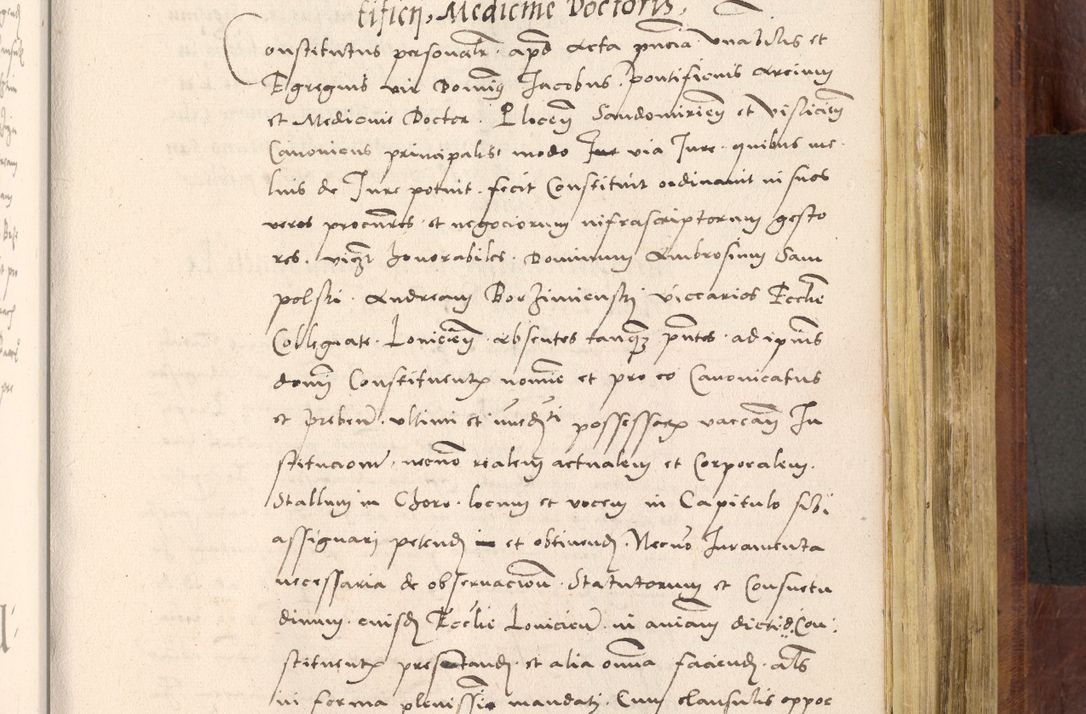 tificis, Medicine Doctoris,
Constitutus personaliter apd Acta pncia Vnabilis et
Egregius vir Dominus Jacobus Pontificius Arcium
et Medicine Doctor. Plocen Sandomirien et Vislicien
Canonicus principalis modo via Jure quibus me
lius de Jure potuit fecit Constituit ordinauit in suos
veros procures et negociorum infrascriptorum gesto
res, vizt honorabiles Dominum Ambrosium Sam
polski Andream Borzimienski viccarios Ecclie
Collegiate Lovicien absentes tanq pntes ad ipius
domi Constituentis nomine et pro eo Canonicatus
et preben ultimi et immediati possessoris vaccan In
stitucionem, necno realem actualem et Corporalem
Stallum in Choro locum et vocem in Capitulo sibi
assignari petend et obtinend. Necno Juramenta
necessaria de obseruacione Statutorum et Consuetu
dinum eiusd Ecclie Lovicien in aniam dicti d. Con
stituentis prestand et alia omnia faciend als
in forma plenissie mandati. Cum clausulis oppor